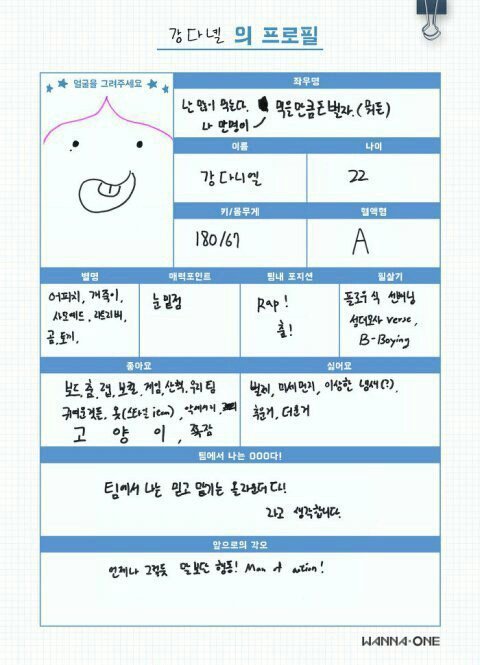 강다넬 의 프로필
얼굴을 그려주세요
좌우명
난 많이 먹는다. 먹을만큼은 벌자. (뭐든)
나 만명이
이름
나이
강다니엘
22
키/몸무게
혈액형
180/67
A
별명
매력포인트
팀내 포지션
필살기
어피치, 개죽이,
사모예드,
곰, 토끼,
눈밑점
Rap!
춤!
플로우식
성대모사 verse,
B-Boying
좋아요
싫어요
보드, 춤, 랩, 보컬, 게임, 산책, 우리팀
귀여운것들, 옷(스타일 icon),
고양이,
벌레, 미세먼지, 이상한 냄새(?),
추운거, 더운거
팀에서 나는 OOO다!
팀에서 나는 믿고 맡기는 올라운더다!
라고 생각합니다.
앞으로의 각오
언제나 그렇듯 말보단 행동! Man of action!
WANNA·ONE